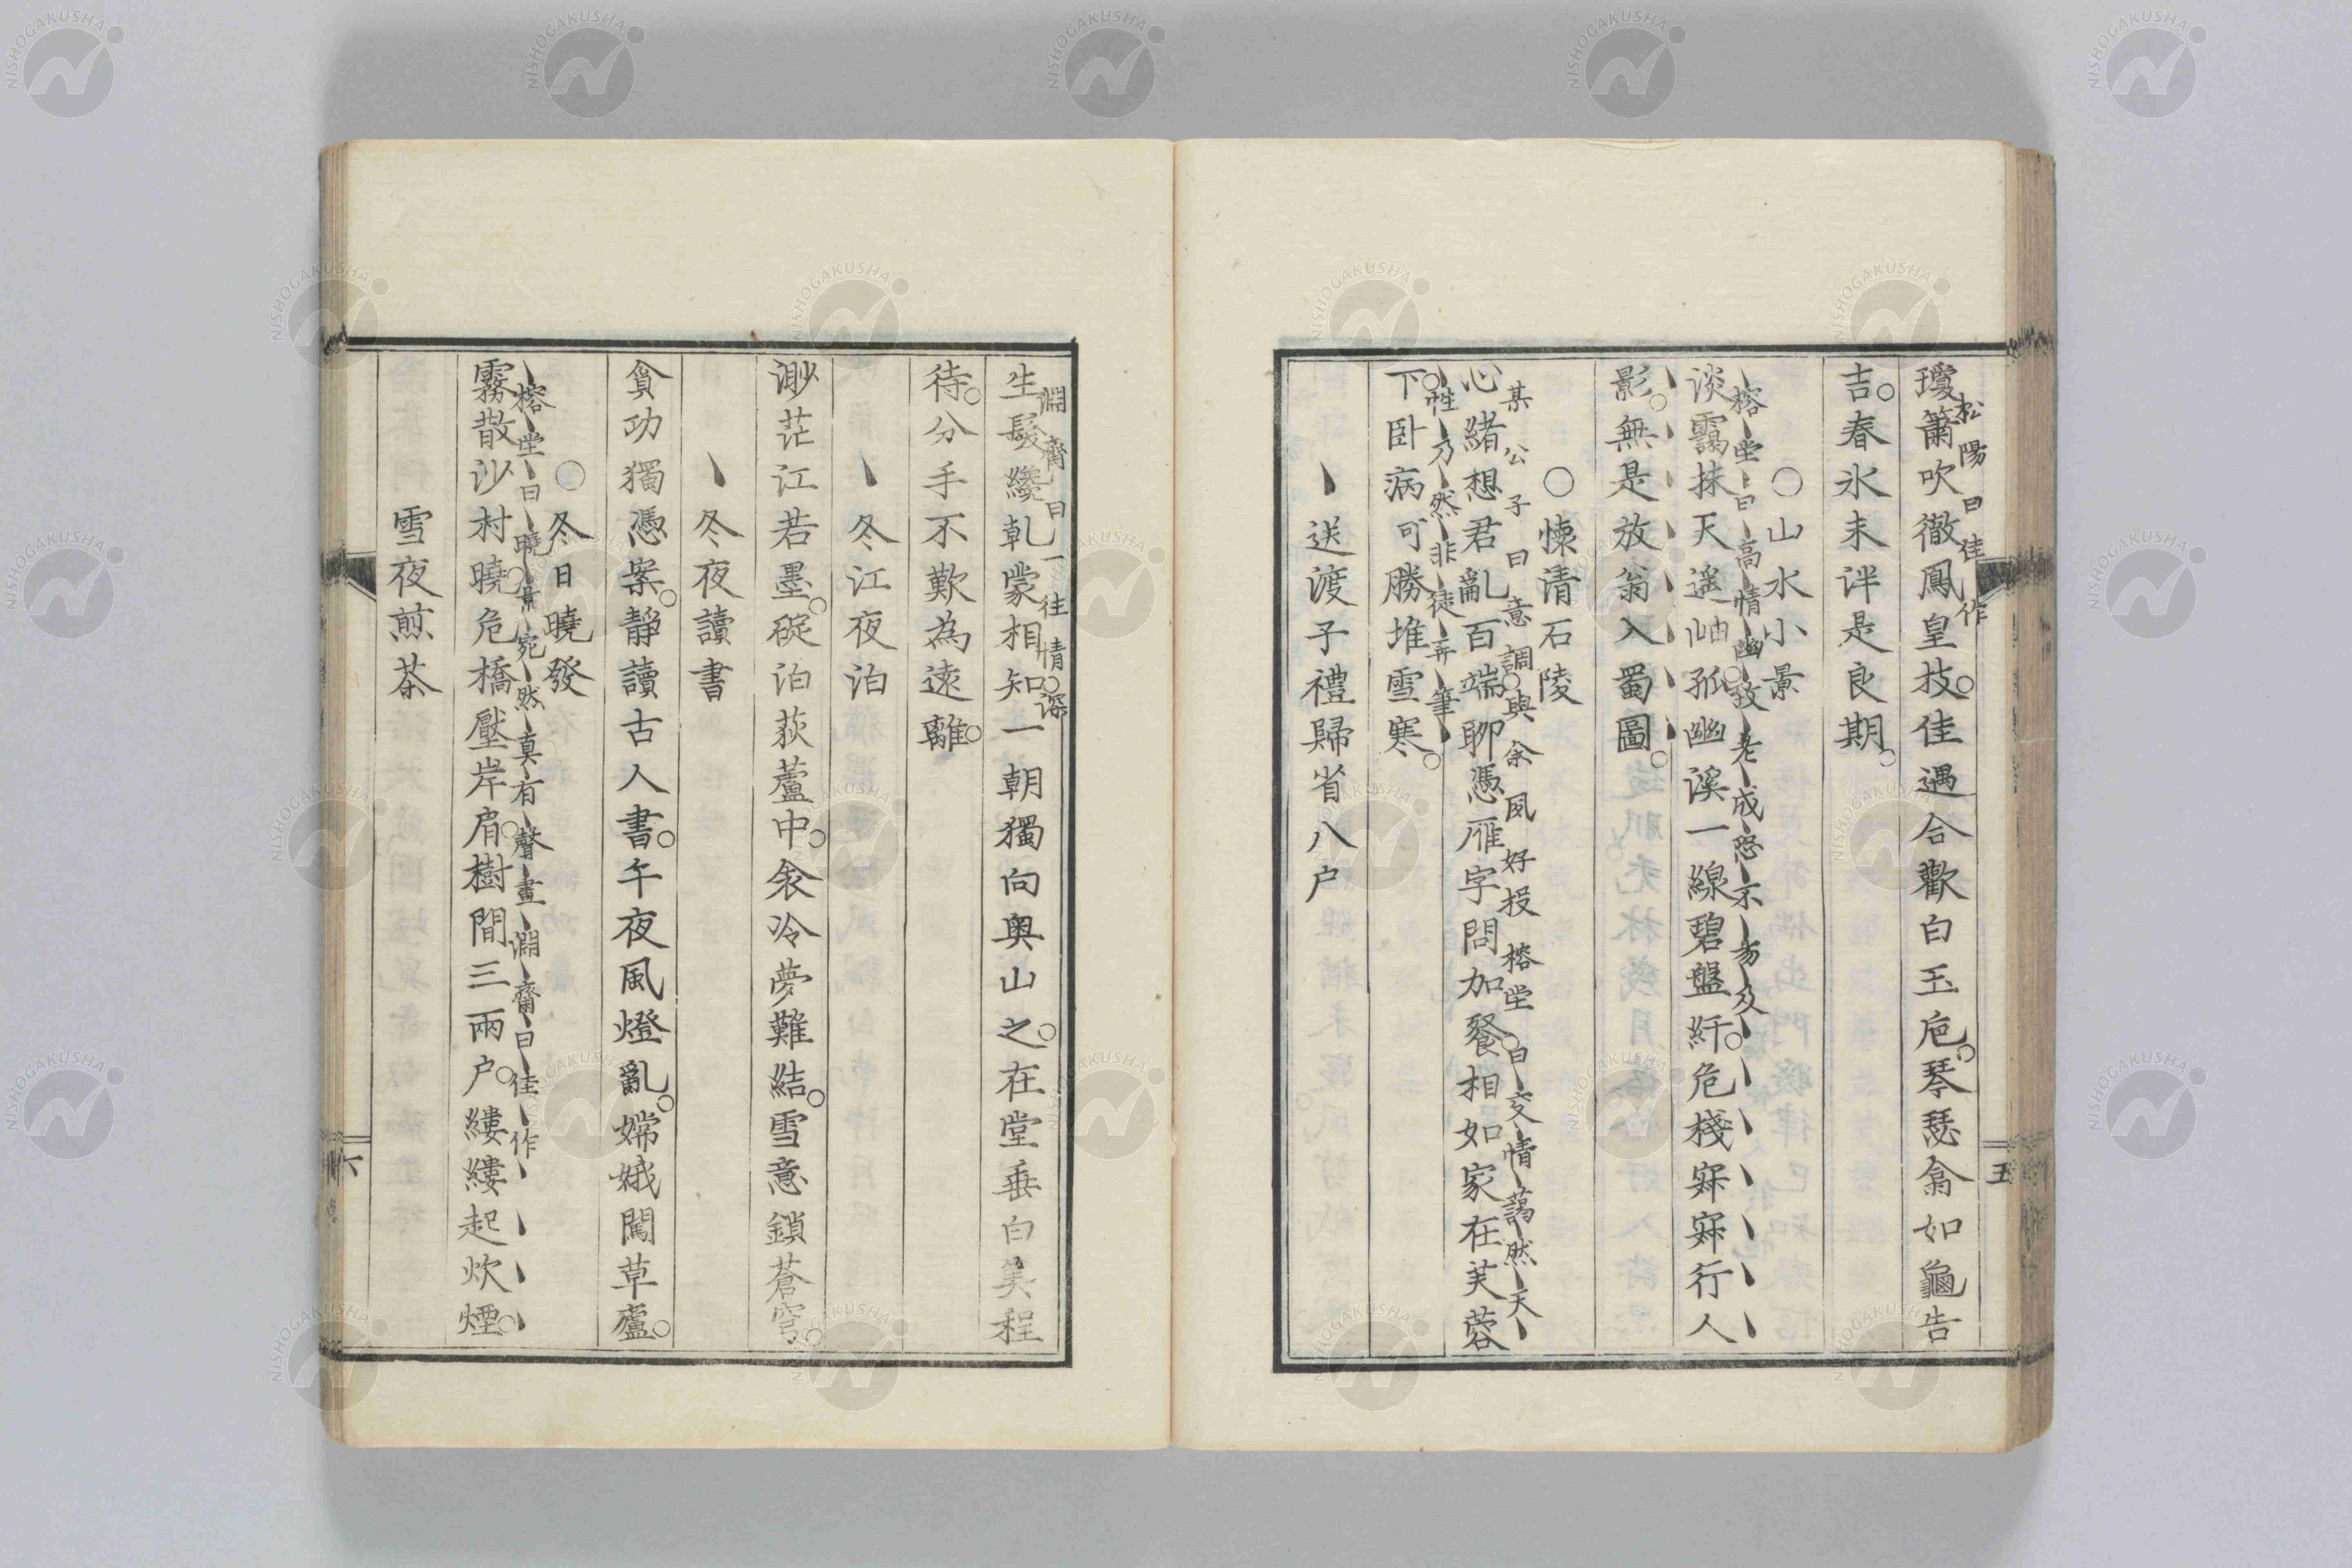 松陽曰佳作
瓊簫吹徹鳳皇技佳遇合歡白玉巵琴瑟翕如龜告
吉春氷未泮是良期
○山水小景
榕堂曰高情幽致老成恐不易及
淡靄抹天遥岫孤幽溪一線碧盤紆危棧寂寂行人
影無是放翁入蜀圖
○懐清石陵
某公子曰意調與余夙好投榕堂曰交情藹然天
心緒想君亂百端聊憑雁字問加餐相如家在芙蓉
性乃然非徒弄筆
下卧病可勝堆雪寒
送渡子禮歸省八户
淵齋曰一往情深
生髮纔乾蒙相知一朝獨向奥山之在堂垂白筭程
待分手不歎為遠離
冬江夜泊
渺茫江若墨碇泊荻蘆中衾冷夢難結雪意鎖蒼穹
冬夜讀書
貪功獨憑案靜讀古人書午夜風燈亂嫦娥闖草廬
○冬日曉發
榕堂曰曉景宛然真有聲畫淵齋曰佳作
霧散沙村曉危橋壓岸肩樹間三兩户縷縷起炊煙
雪夜煎茶
五
六
NISHOGAKUSHA